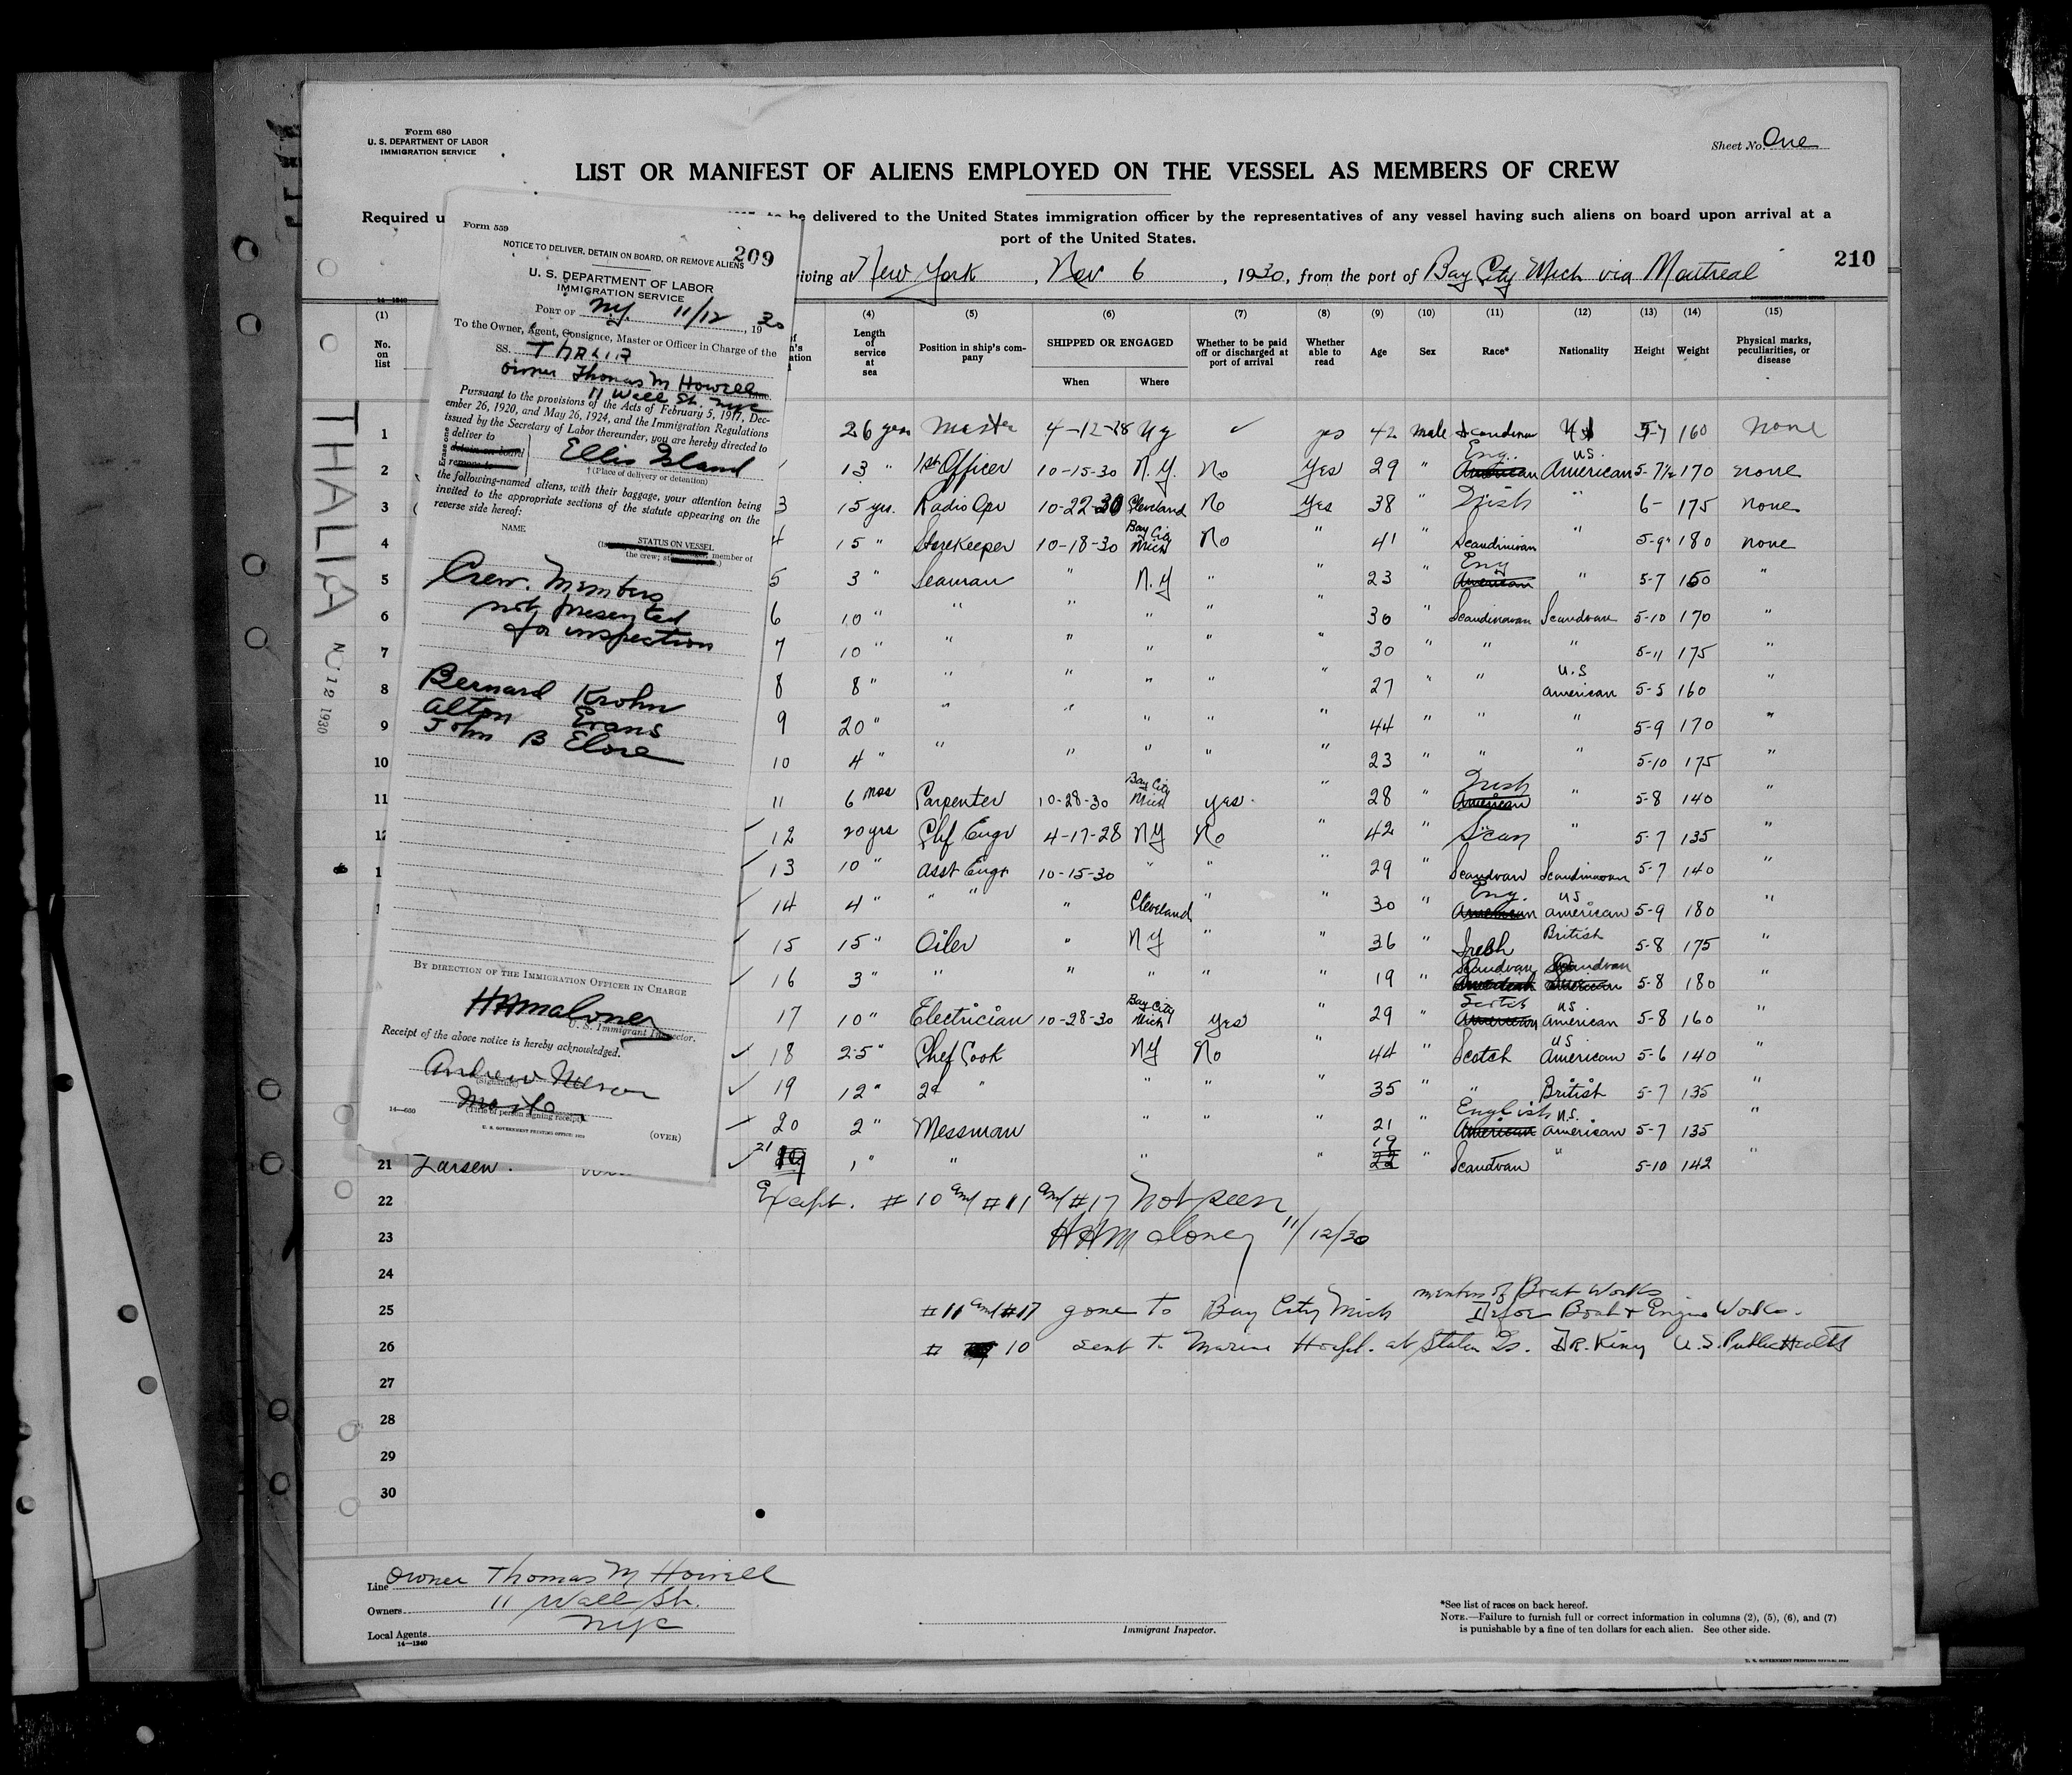 Form 680
U. S. DEPARTMENT OF LABOR
IMMIGRATION SERVICE
Sheet No. One
LIST OR MANIFEST OF ALIENS EMPLOYED ON THE VESSEL AS MEMBERS OF CREW
Required u
to be delivered to the United States immigration officer by the representatives of any vessel having such aliens on board upon arrival at a
port of the United States.
iving at New York, Nov 6, 1930, from the port of Bay City Mich via Montreal
210
Form 559
209
NOTICE TO DELIVER, DETAIN ON BOARD, OR REMOVE ALIENS
U. S. DEPARTMENT OF LABOR
IMMIGRATION SERVICE
PORT OF NY 11/12, 1930
To the Owner, Agent, Consignee, Master or Officer in Charge of the
SS. THALIA
owner Thomas M Howell
11 Wall St. nyc
Pursuant to the provisions of the Acts of February 5, 1917, Dec-
ember 26, 1920, and May 26, 1924, and the Immigration Regulations
issued by the Secretary of Labor thereunder, you are hereby directed to
Erase one
deliver to
detain on board
remove to
Ellis Island
† (Place of delivery or detention)
the following-named aliens, with their baggage, your attention being
invited to the appropriate sections of the statute appearing on the
reverse side hereof:
NAME
STATUS ON VESSEL
the crew; member of
Crew. Members
not presented
for inspection
Bernard Krohn
Alton Evans
John B Elore
BY DIRECTION OF THE IMMIGRATION OFFICER IN CHARGE
HAMaloney
U. S. Immigrant Inspector.
Receipt of the above notice is hereby acknowledged.
Andrew Nelson
(Signature)
Master
(Title of person signing receipt)
14—660
U. S. GOVERNMENT PRINTING OFFICE: 1929
(OVER)
THALIA
12 1930
(1) (4) (5) (6) (7) (8) (9) (10) (11) (12) (13) (14) (15)
No. on list
Length of service at sea
Position in ship's company
SHIPPED OR ENGAGED
When
Where
Whether to be paid off or discharged at port of arrival
Whether able to read
Age
Sex
Race*
Nationality
Height
Weight
Physical marks, peculiarities, or disease
1 26 years Master 4-12-28 NY ✓ yes 42 male Scandinav US 5-7 160 none
2 13 " 1st Officer 10-15-30 N.Y. No Yes 29 " Eng. American US. American 5-7½ 170 none
3 15 yrs. Radio Opr 10-22-30 Cleveland No Yes 38 " Irish " 6- 175 none
4 15 " Storekeeper 10-18-30 Bay City Mich No " 41 " Scandinivan " 5-9" 180 none
5 3 " Seaman " N.Y " " 23 " Eng American " 5-7 150 "
6 10 " " " " " " 30 " Scandinavan Scandvan 5-10 170 "
7 10 " " " " " " 30 " " " 5-11 175 "
8 8 " " " " " " 27 " " U.S american 5-5 160 "
9 20 " " " " " " 44 " " " 5-9 170 "
10 4 " " " " " " 23 " " " 5-10 175 "
11 6 mos Carpenter 10-28-30 Bay City Mich yes. " 28 " Irish American " 5-8 140 "
12 20 yrs Chf Engr 4-17-28 NY No " 42 " Scan " 5-7 135 "
13 10 " asst Engr 10-15-30 " " " 29 " Scandvan Scandinavan 5-7 140 "
14 4 " " " " Cleveland " " 30 " Eng. American US american 5-9 180 "
15 15 " Oiler " NY " " 36 " Irish British 5-8 175 "
16 3 " " " " " " 19 " Scandvan Scandvan American 5-8 180 "
17 10 " Electrician 10-28-30 Bay City Mich Yes " 29 " Scotch American US american 5-8 160 "
18 25 " Chef Cook NY No " 44 " Scotch US American 5-6 140 "
19 12 " 2d " " " " 35 " " British 5-7 135 "
20 2 " Messman " " " 21 " English American U.S. american 5-7 135 "
21 Larsen. 21 19 1 " " " " 19 22 Scandvan " 5-10 142 "
22 Except. # 10 and # 11 and # 17 not seen
23 HAMaloney 11/12/30
24
members of Boat Works
25 # 11 and # 17 gone to Bay City Mich Defoe Boat & Engine Works.
26 # 10 sent to Marine Hospl. at Staten Is. DR. King U.S. Public Health
27
28
29
30
Line Owner Thomas M Howell
Owners 11 Wall St.
Local Agents NYC
14—1240
Immigrant Inspector.
*See list of races on back hereof.
NOTE.—Failure to furnish full or correct information in columns (2), (5), (6), and (7)
is punishable by a fine of ten dollars for each alien. See other side.